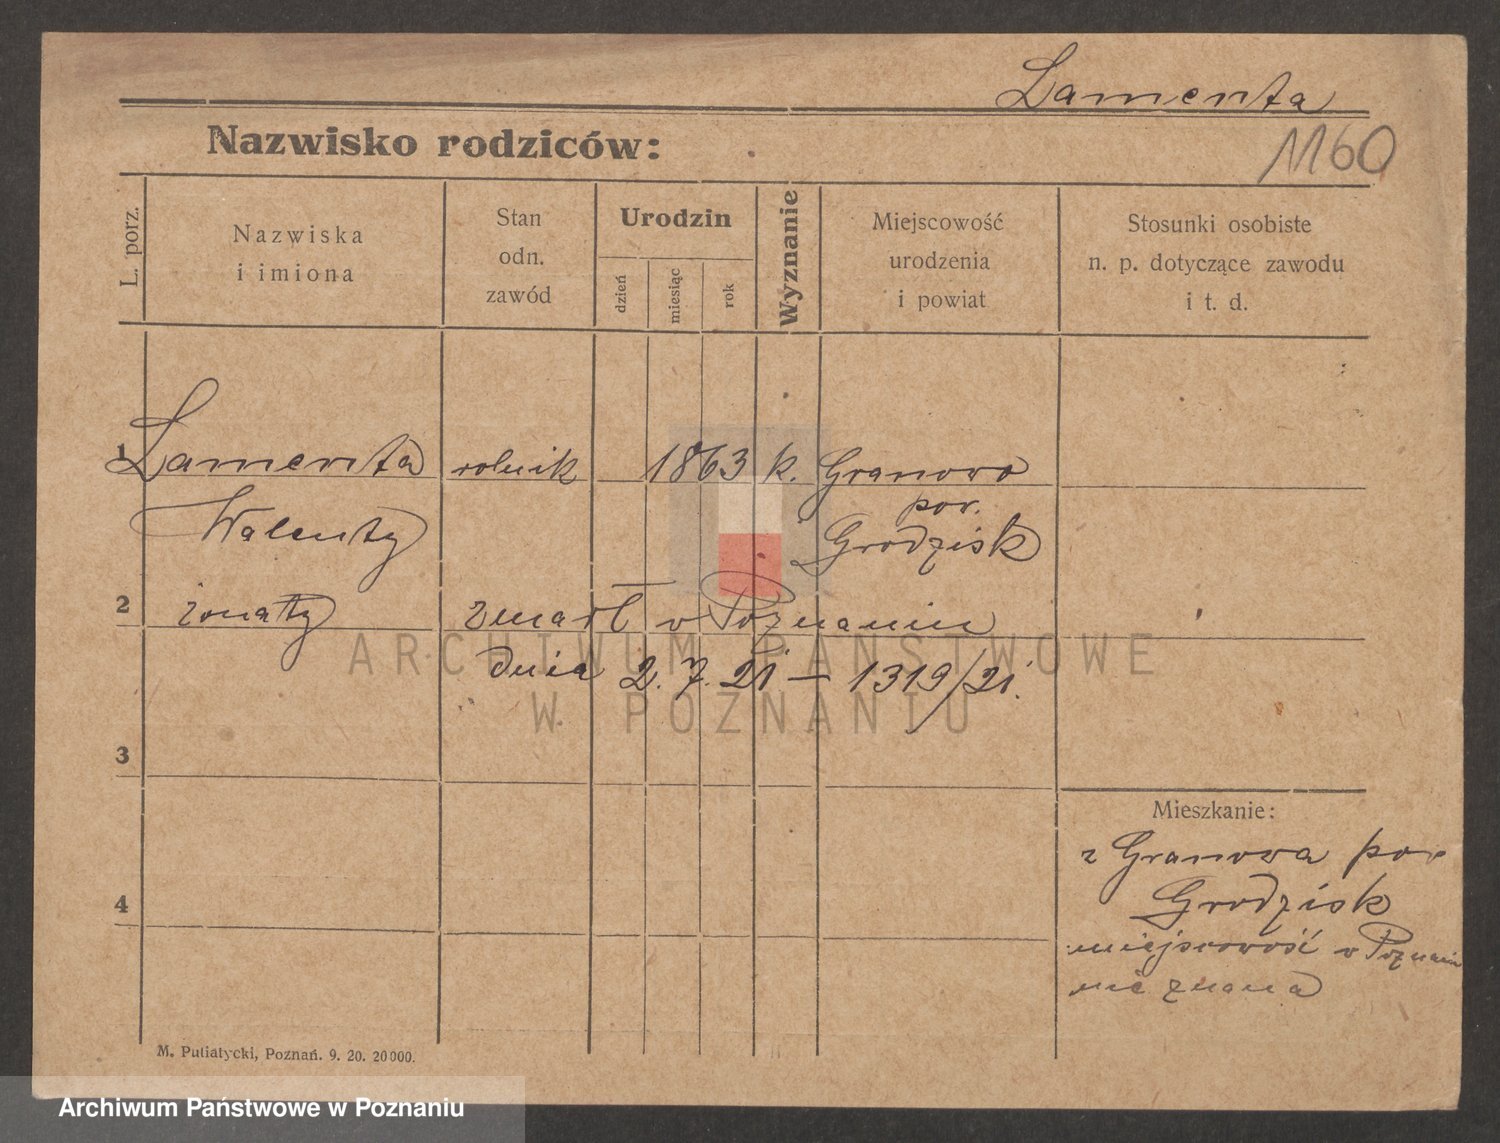 Lamenta
Nazwisko rodziców:
1160
L. porz.
Nazwiska
i imiona
Stan
odn.
zawód
Urodzin
dzień
miesiąc
rok
Wyznanie
Miejscowość
urodzenia
i powiat
Stosunki osobiste
n. p. dotyczące zawodu
i t. d.
1 Lamenta rolnik 1863 k. Granowo
Walenty pow.
Grodzisk
2 żonaty zmarł w Poznaniu
dnia 2.7.21 — 1319/21.
ARCHIWUM PAŃSTWOWE
W POZNANIU
3
Mieszkanie:
z Granowa pow.
4 Grodzisk
miejscowość w Poznaniu
nie znana
M. Putiatycki, Poznań. 9. 20. 20000.
Archiwum Państwowe w Poznaniu